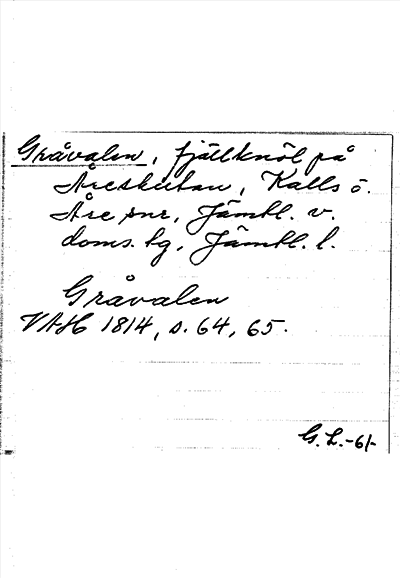 Gråvalen, fjällknöl på
Åreskutan, Kalls o.
Åre snr, Jämtl. v.
doms. tg, Jämtl. l.
Gråvalen
VAH 1814, s. 64, 65.
G. L. -61-